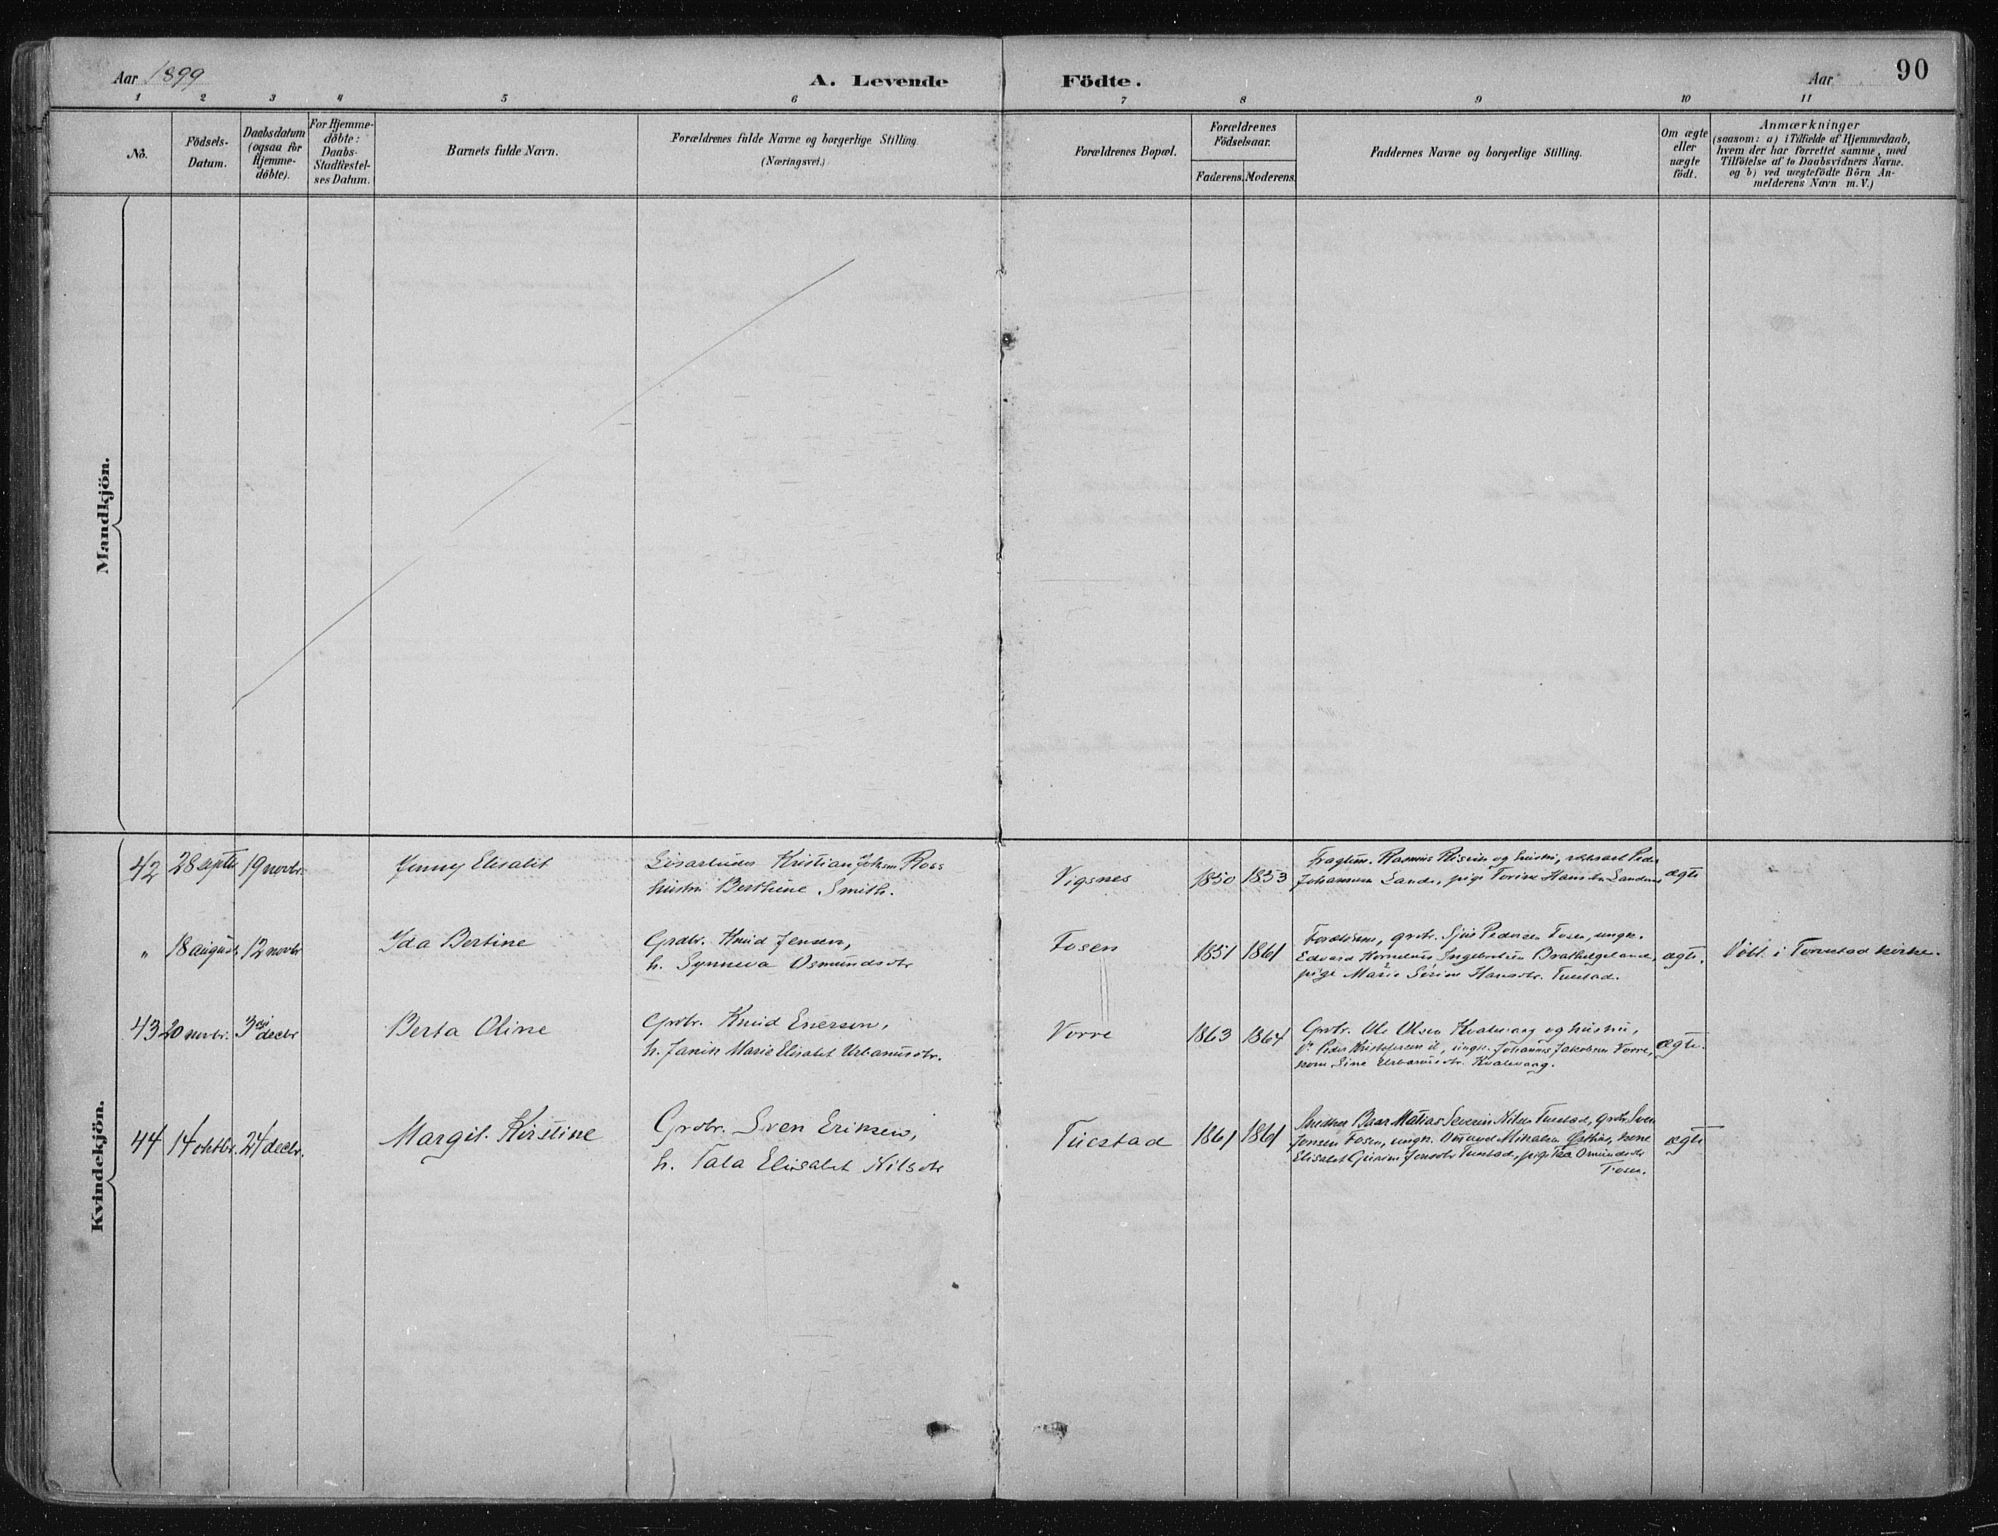 Aar 1899
A. Levende Födte.
Aar
90
1 2 3 4 5 6 7 8 9 10 11
No.
Födsels-
Datum.
Daabsdatum
(ogsaa for
Hjemme-
döbte).
For Hjemme-
döbte:
Daabs-
Stadfæstel-
ses Datum.
Barnets fulde Navn.
Forældrenes fulde Navne og borgerlige Stilling.
(Næringsvei.)
Forældrenes Bopæl.
Forældrenes
Födselsaar.
Faderens. Moderens.
Faddernes Navne og borgerlige Stilling.
Om ægte
eller
uægte
födt.
Anmærkninger
(saasom: a) i Tilfælde af Hjemmedaab,
hvem der har forrettet samme, med
Tilföielse af to Daabsvidners Navne.
og b) ved uægtefödte Börn An-
melderens Navn m. V.)
Mandkjön.
Kvindekjön.
42 28 septbr 19 novbr. Jenny Elisabet
Kristian Johsen Ross
hustru Berthine Smith.
Vigsnes 1850 1853
Rasmus og hustru, Peder
Johannesen Sande, pige Torine Hansdtr
ægte
" 18 august 12 novbr Ida Bertine
Grdbr. Knud Jensen,
h. Synneva Osmundsdtr
Fosen 1851 1861
Forældrene, grdbr. Sjur Pedersen Fosen, ungk.
Edvard Kornelius Ingebretsen Bratthelgeland,
pige Marie Serine Hansdtr. Tuestad.
ægte.
Döbt i Torvestad kirke.
43 20 novbr. 3die decbr Berta Oline
Grdbr. Knud Enersen,
h. Janik Marie Elisabet Urbanusdtr.
Vorre 1863 1864
Grdbr. Ole Olsen Kvalevaag og hustru,
Peder Kristofersen ib, ungk. Johannes Jakobsen Vorre,
kone Sine Urbanusdtr. Kvalevaag.
ægte.
44 14 oktbr. 24 decbr. Margit Kirstine
Grdbr. Sven Eriksen,
h. Tala Elisabet Nilsdtr
Tuestad 1861 1861
Matias Severin Nilsen Tuestad, grdbr Sven
Jensen Fosen, ungk. Osmund Mikalsen kone
Elisabet Jensdtr Tuestad, pige Osmundsdtr
Fosen.
ægte